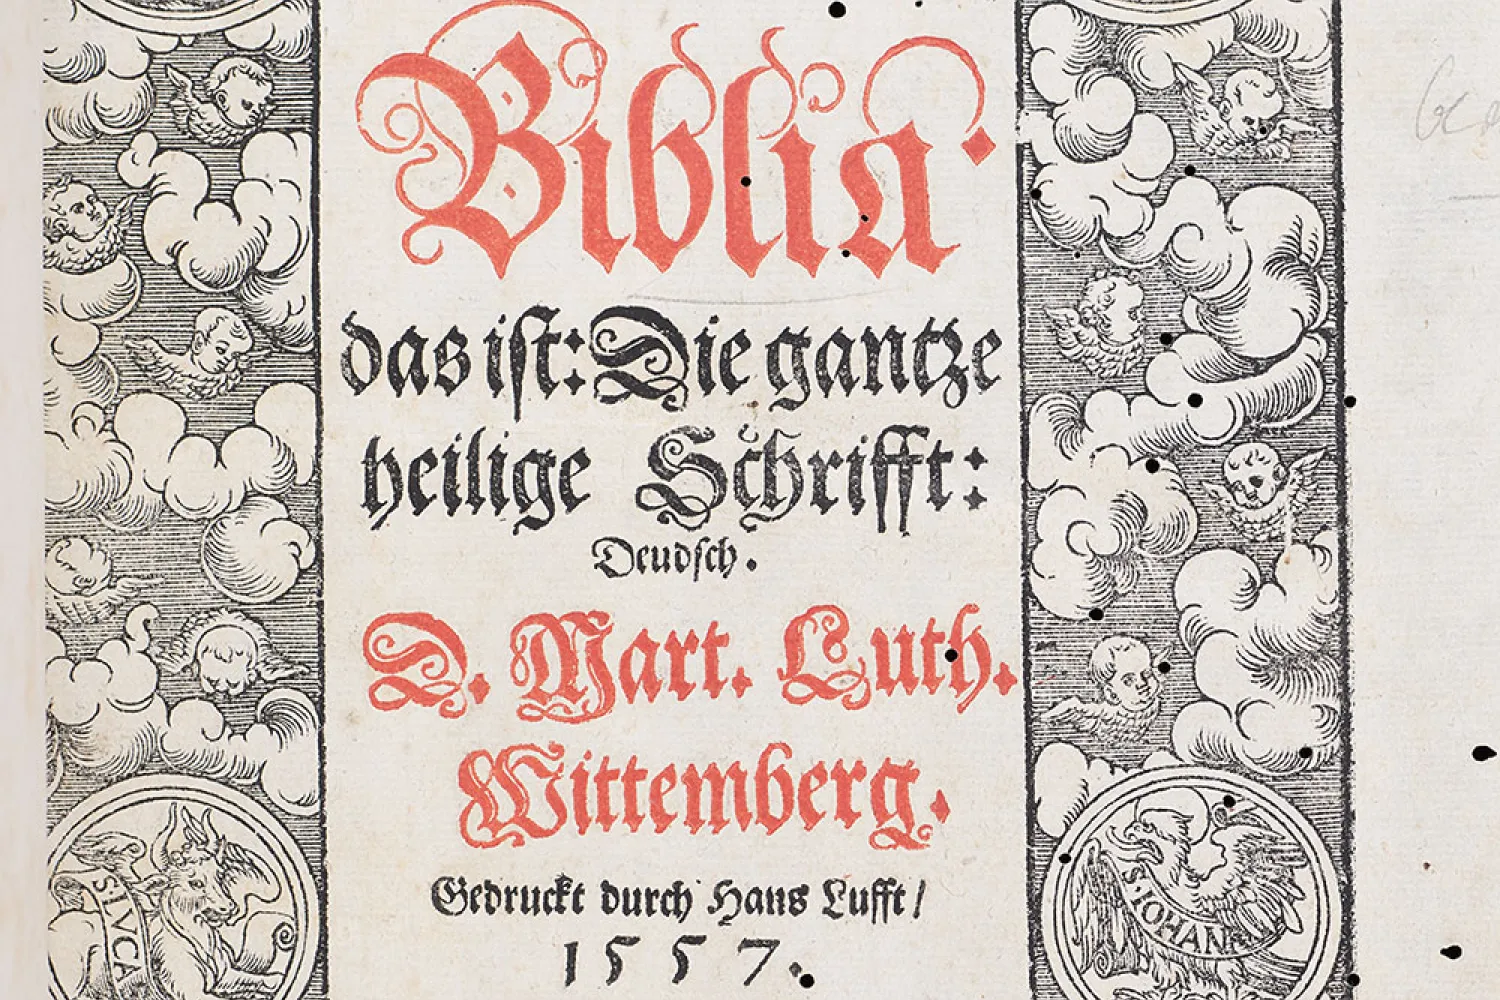 Biblia.
das ist: Die gantze
heilige Schrifft:
Deudsch.
D. Mart. Luth.
Wittemberg.
Gedruckt durch Hans Lufft/
1557.
S LVCA
S. IOHAN